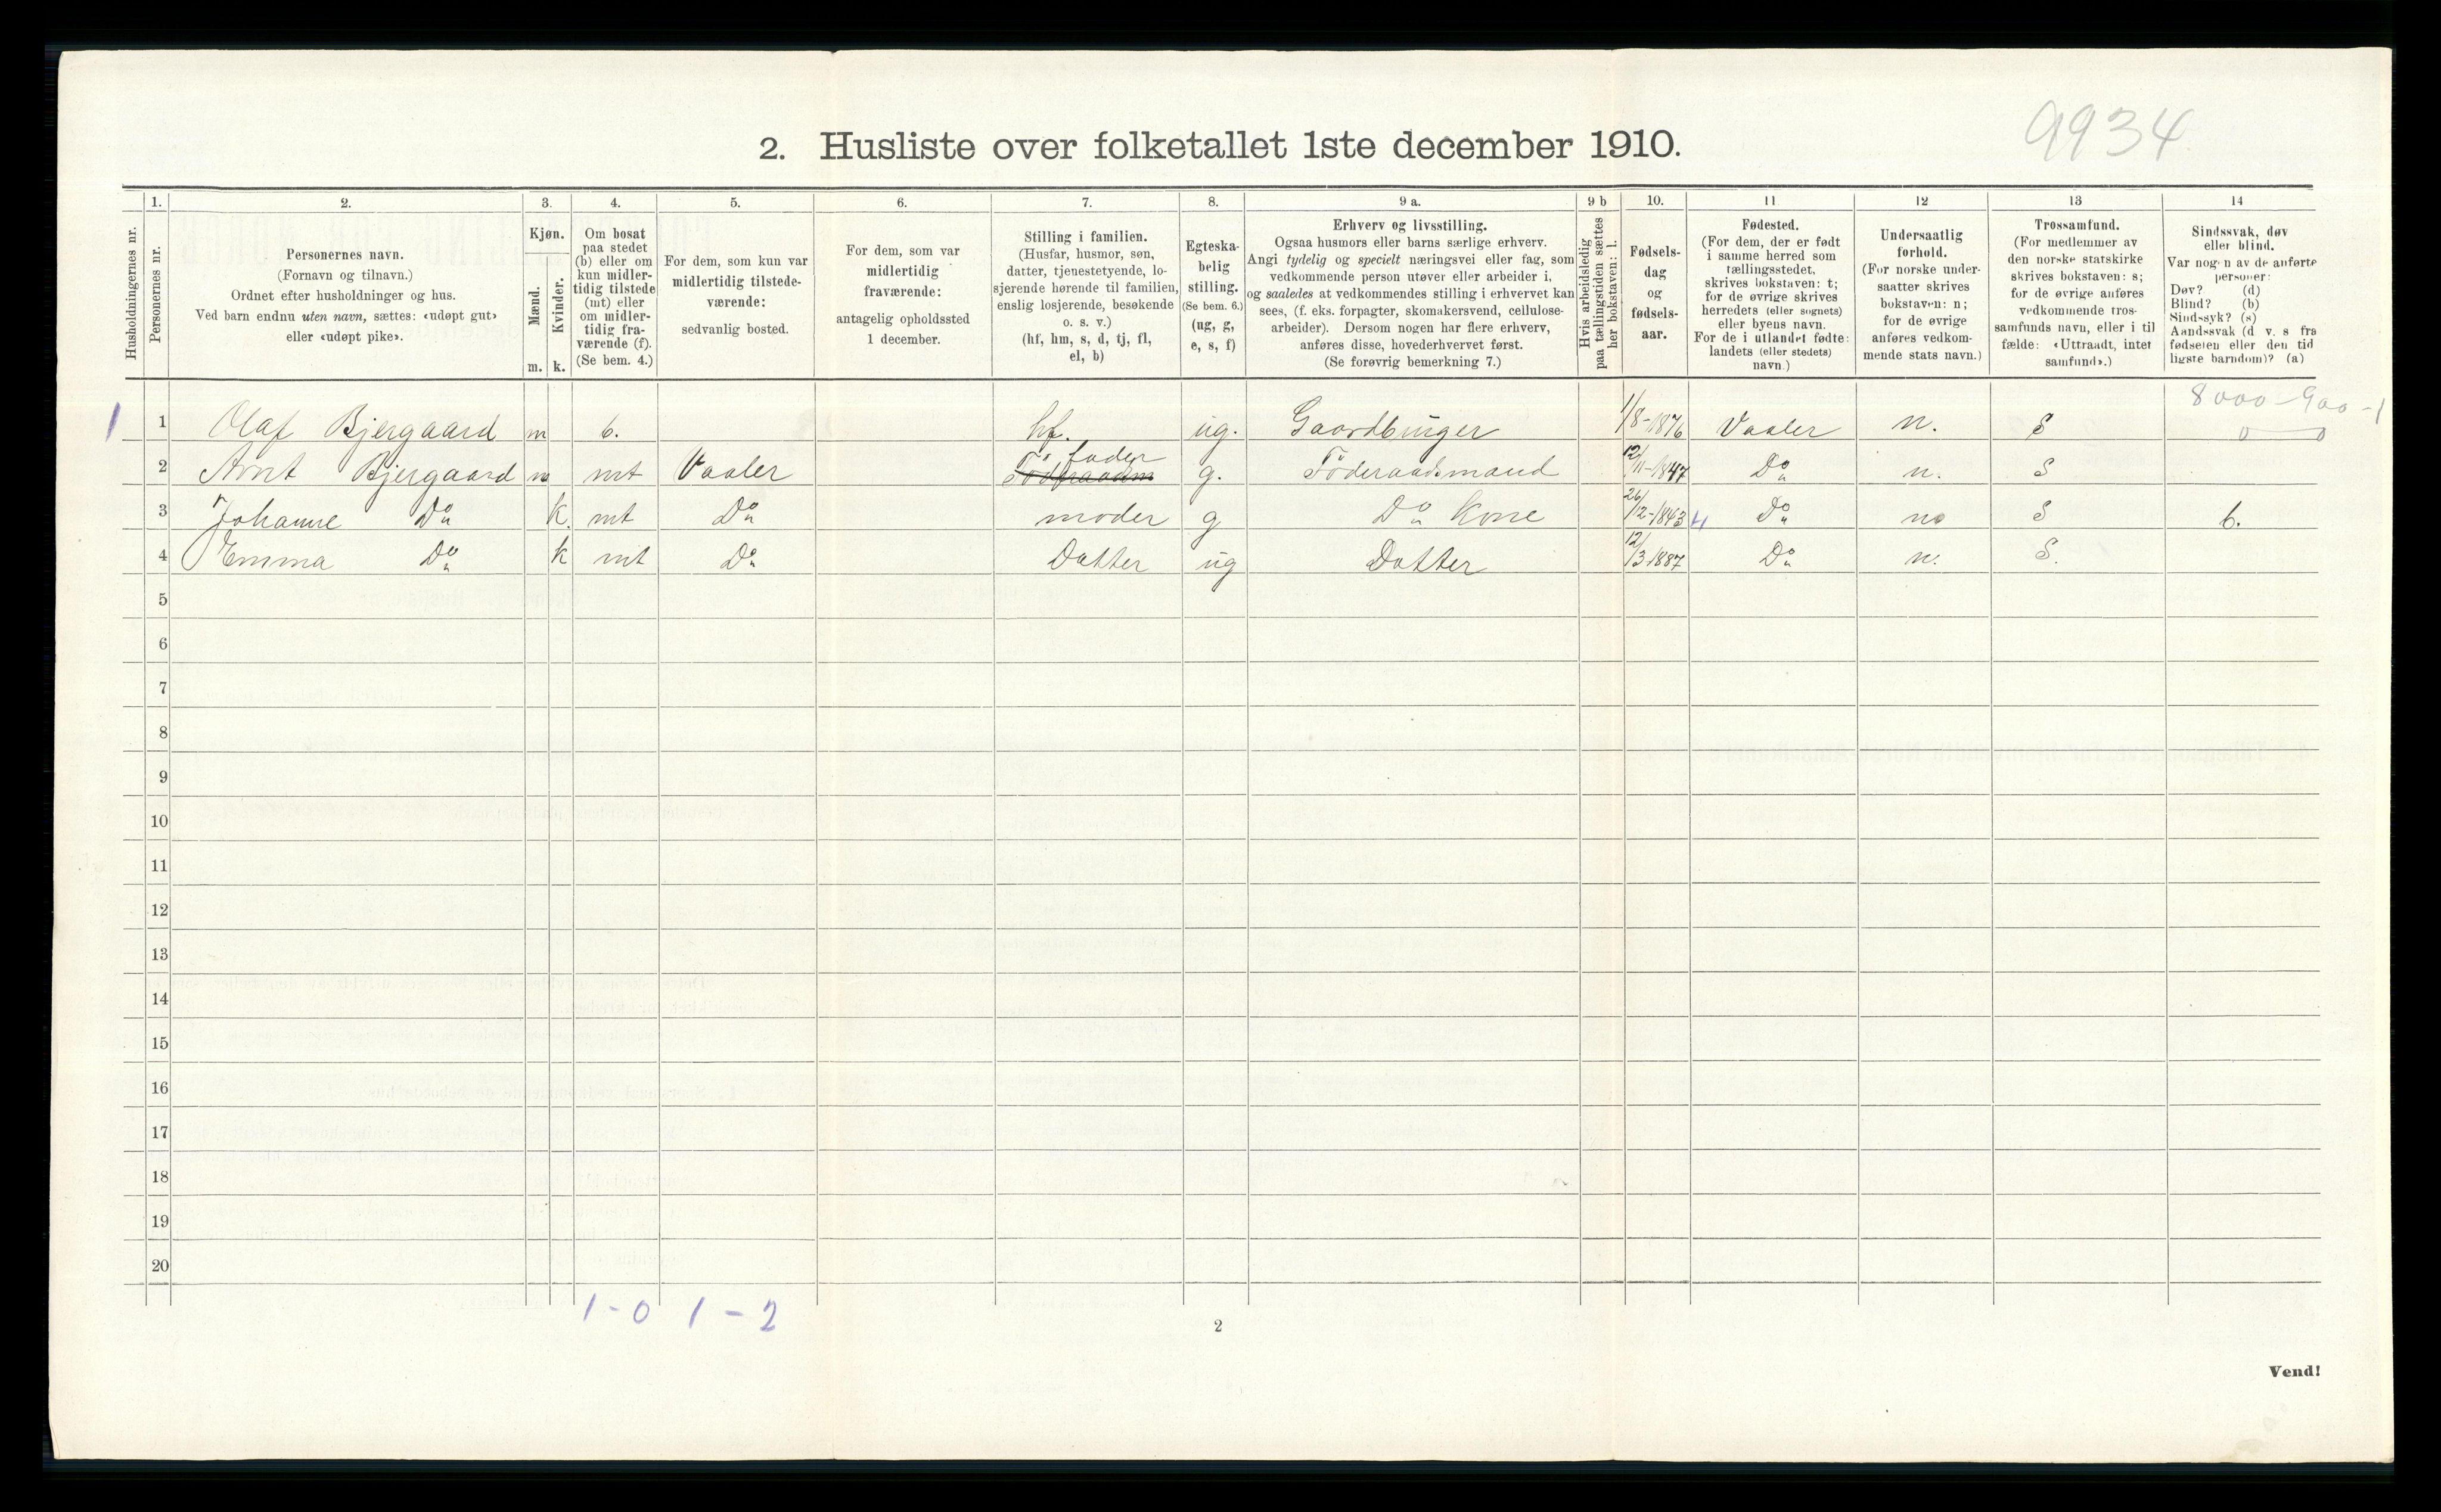 9934
2. Husliste over folketallet 1ste december 1910.
Husholdningernes nr.
1.
Personernes nr.
2.
Personernes navn.
(Fornavn og tilnavn.)
Ordnet efter husholdninger og hus.
Ved barn endnu uten navn, sættes: «udøpt gut»
eller «udøpt pike».
3.
Kjøn.
Mænd.
Kvinder.
m. k.
4.
Om bosat
paa stedet
(b) eller om
kun midler-
tidig tilstede
(mt) eller
om midler-
tidig fra-
værende (f).
(Se bem. 4.)
5.
For dem, som kun var
midlertidig tilstede-
værende:
sedvanlig bosted.
6.
For dem, som var
midlertidig
fraværende:
antagelig opholdssted
1 december.
7.
Stilling i familien.
(Husfar, husmor, søn,
datter, tjenestetyende, lo-
sjerende hørende til familien,
enslig losjerende, besøkende
o. s. v.)
(hf, hm, s, d, tj, fl,
el, b)
8.
Egteska-
belig
stilling.
(Se bem. 6.)
(ug, g,
e, s, f)
9 a.
Erhverv og livsstilling.
Ogsaa husmors eller barns særlige erhverv.
Angi tydelig og specielt næringsvei eller fag, som
vedkommende person utøver eller arbeider i,
og saaledes at vedkommendes stilling i erhvervet kan
sees, (f. eks. forpagter, skomakersvend, cellulose-
arbeider). Dersom nogen har flere erhverv,
anføres disse, hovederhvervet først.
(Se forøvrig bemerkning 7.)
9 b
Hvis arbeidsledig
paa tællingstiden sættes
her bokstaven: l.
10.
Fødsels-
dag
og
fødsels-
aar.
11
Fødested.
(For dem, der er født
i samme herred som
tællingsstedet,
skrives bokstaven: t;
for de øvrige skrives
herredets (eller sognets)
eller byens navn.
For de i utlandet fødte:
landets (eller stedets)
navn.)
12
Undersaatlig
forhold.
(For norske under-
saatter skrives
bokstaven: n;
for de øvrige
anføres vedkom-
mende stats navn.)
13
Trossamfund.
(For medlemmer av
den norske statskirke
skrives bokstaven: s;
for de øvrige anføres
vedkommende tros-
samfunds navn, eller i til
fælde: «Uttraadt, intet
samfund».)
14
Sindssvak, døv
eller blind.
Var nogen av de anførte
personer:
Døv? (d)
Blind? (b)
Sindssyk? (s)
Aandssvak (d v. s fra
fødselen eller den tid
ligste barndom)? (a)
8000 - 900 - 1
0 0
1 1 Olaf Bjergaard m b. hf. ug. Gaardbruger 1/8-1876 Vaaler n. S
2 Arnt Bjergaard m mt Vaaler Föderaadm fader g. Föderaadsmand 12/11-1847 Do n. S
3 Johanne Do k. mt Do moder g Do Kone 26/12-1843 4 Do n S b.
4 Emma Do k mt Do Datter ug Datter 12/3 1887 Do n. S.
5
6
7
8
9
10
11
12
13
14
15
16
17
18
19
20
1-0 1-2
2
Vend!